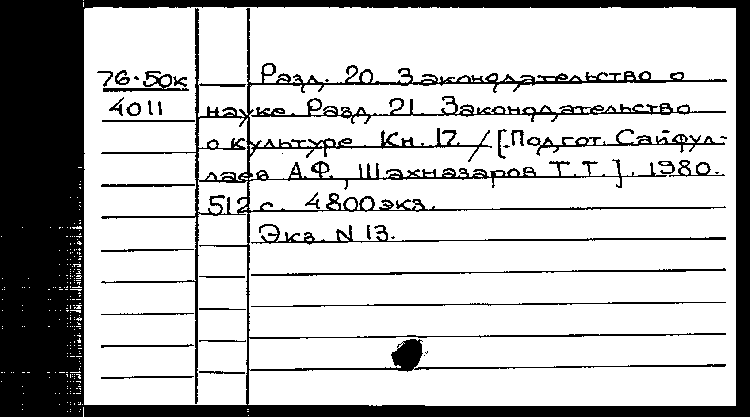 76-50к Разд. 20. Законодательство о
4011 науке. Разд. 21. Законодательство
о культуре Кн. 17. / [Подгот. Сайфул-
лаев А.Ф., Шахназаров Т.Т.]. 1980.
512 с. 4800 экз.
Экз. N 13.